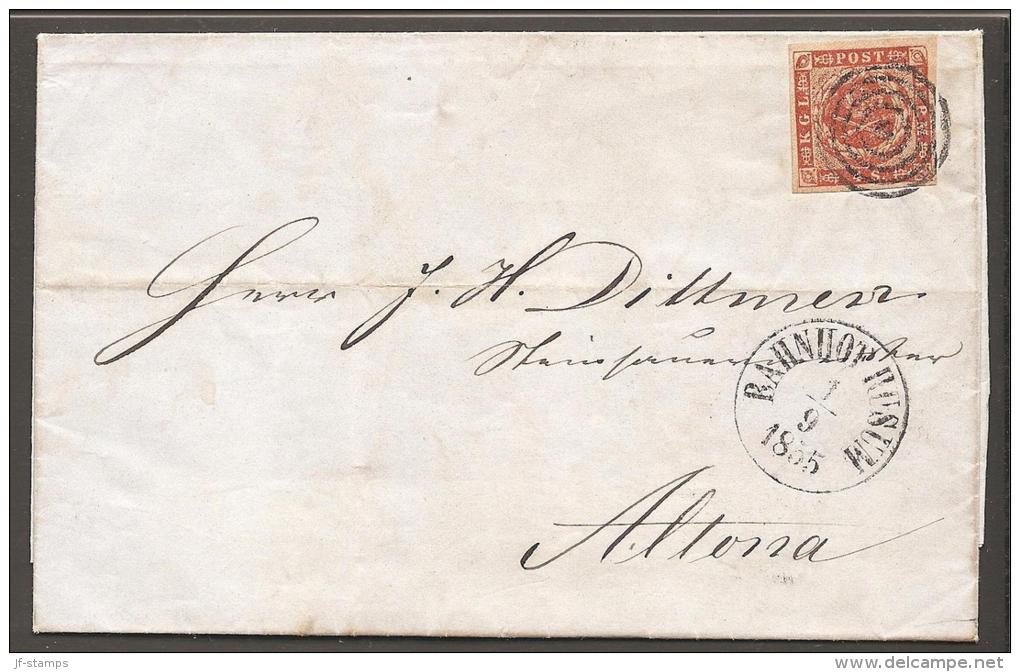 POST
KGL
F R M
4 S.
Herr J. H. Dittmer
BAHNHOF HUSUM
1/9
1855
Altona
jf-stamps
www.delcampe.net